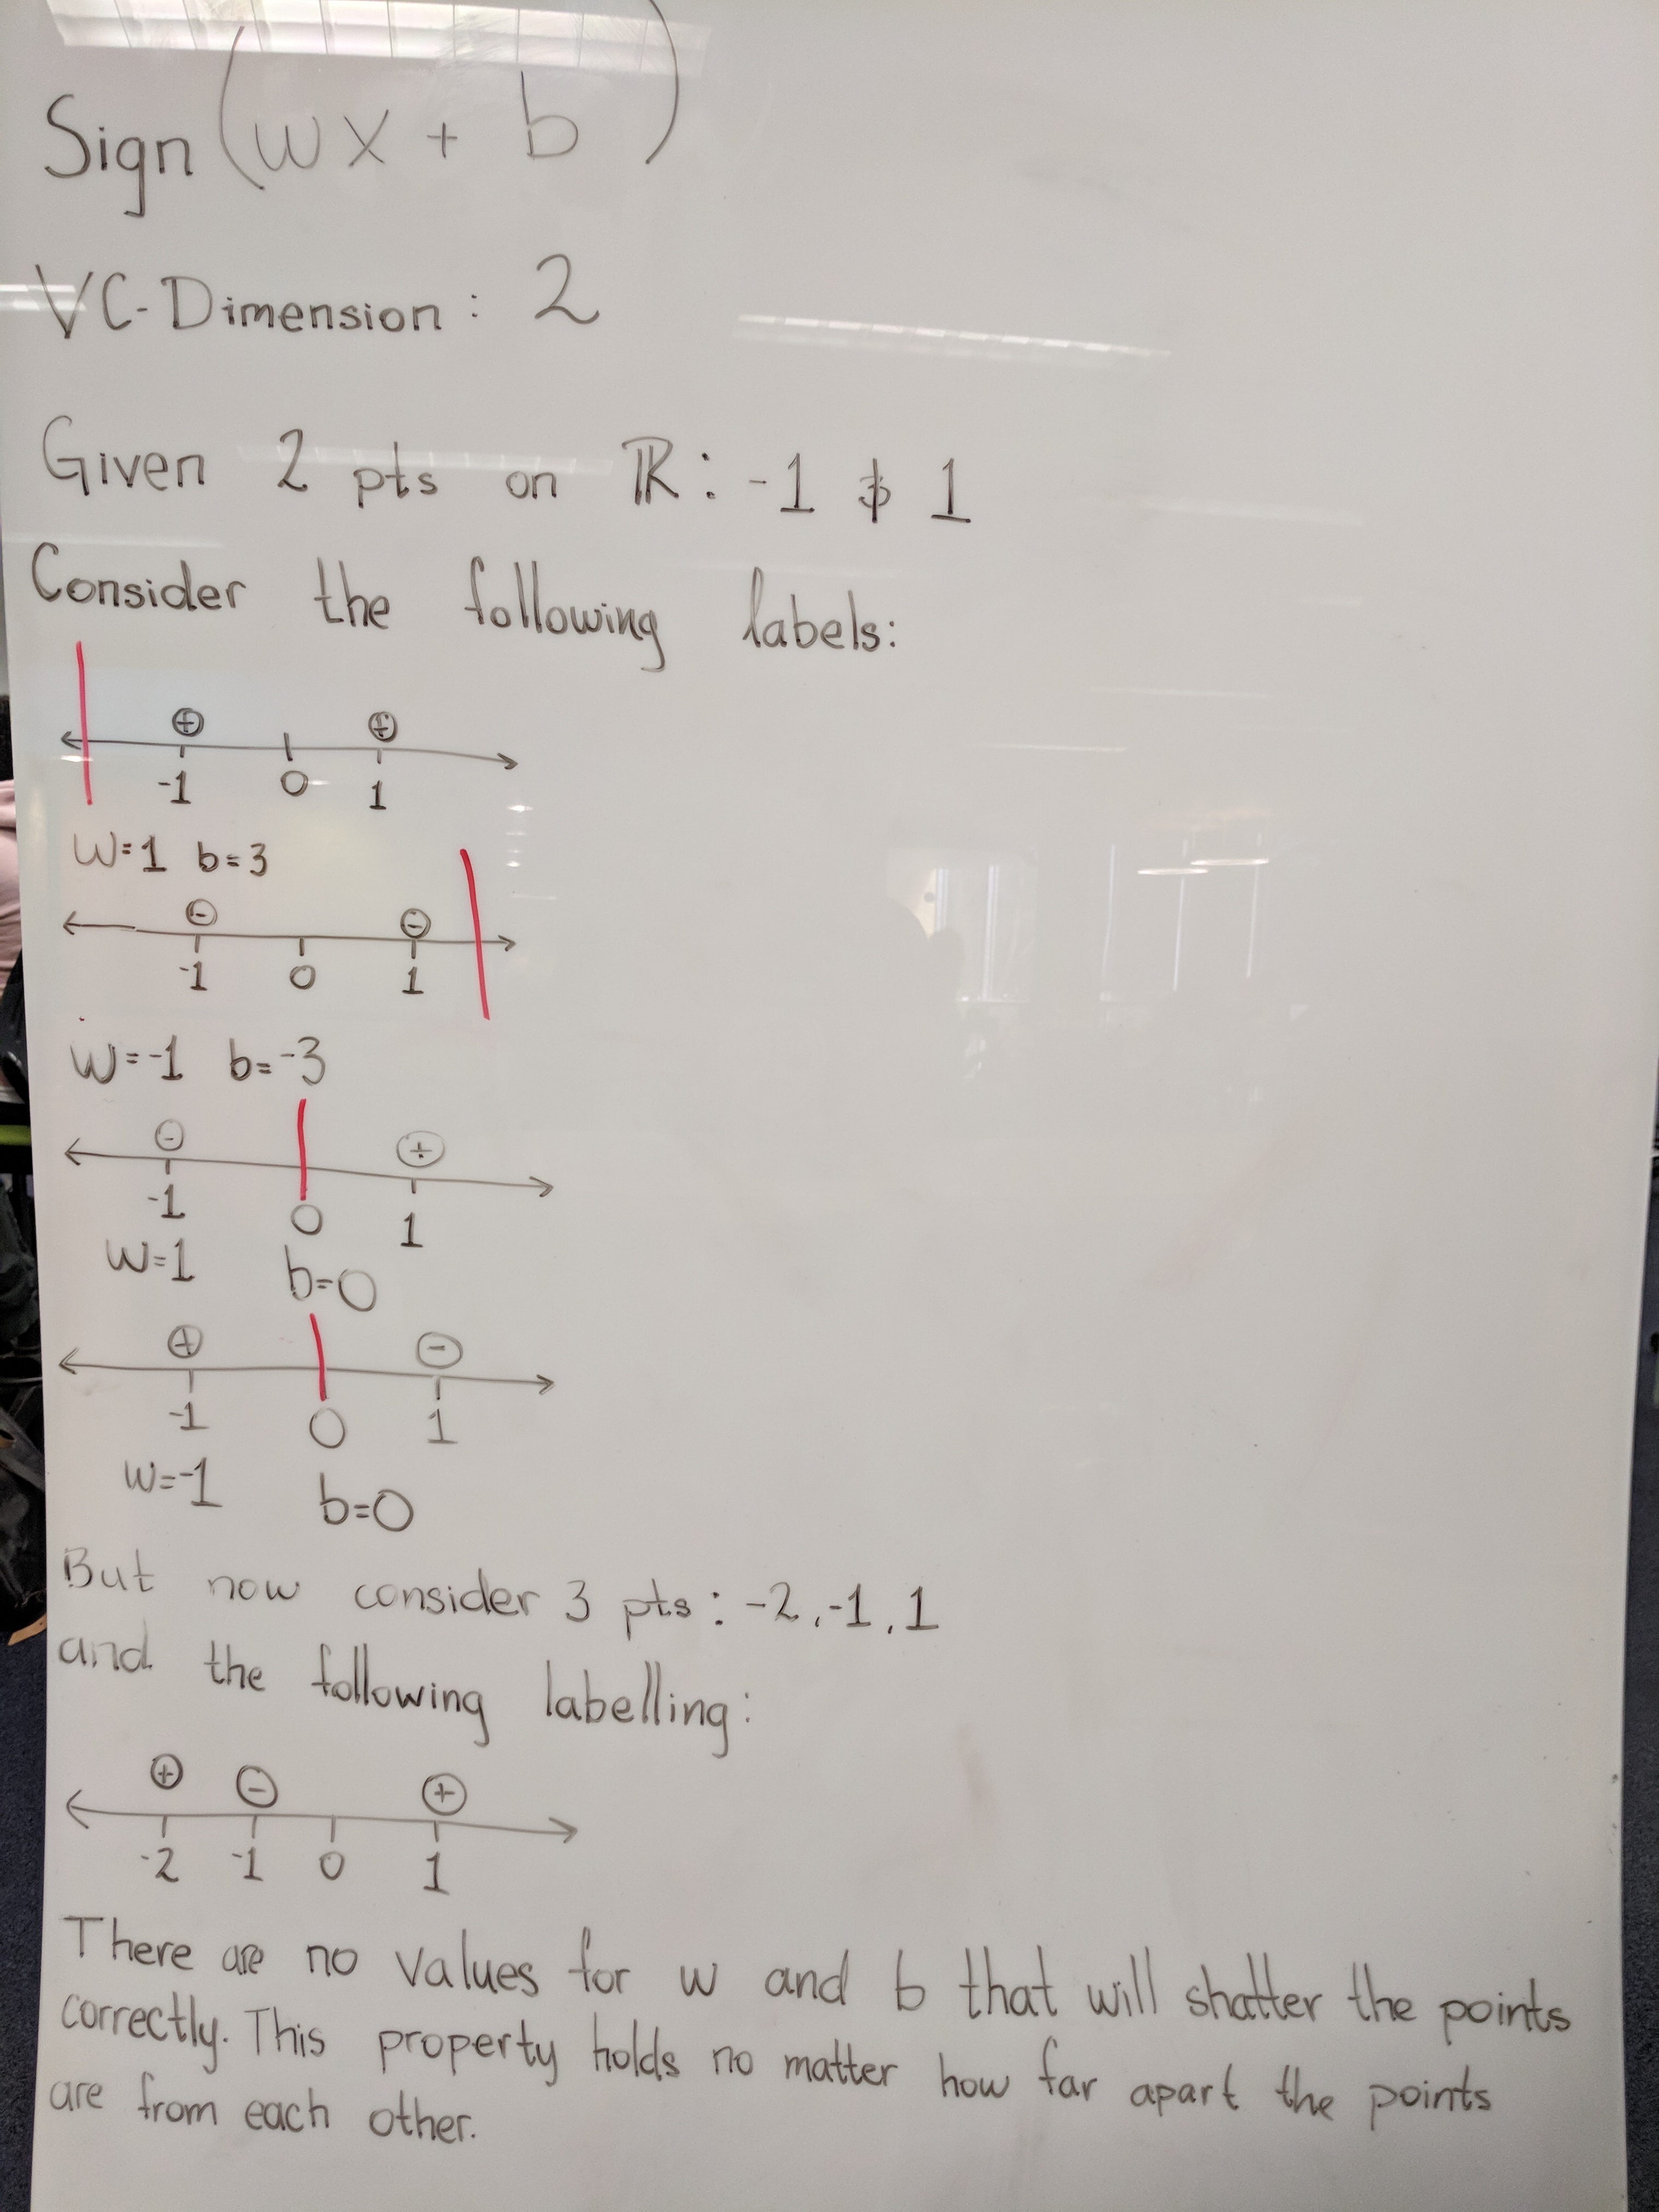 Sign(wx + b)
VC-Dimension: 2
Given 2 pts on ℝ: -1 & 1
Consider the following labels:
⊕ ⊕
-1 0 1
W=1 b=3
⊖ ⊖
-1 0 1
W=-1 b=-3
⊖ ⊕
-1 0 1
W=1 b=0
⊕ ⊖
-1 0 1
W=-1 b=0
But now consider 3 pts: -2,-1,1
and the following labelling:
⊕ ⊖ ⊕
-2 -1 0 1
There are no values for w and b that will shatter the points
correctly. This property holds no matter how far apart the points
are from each other.